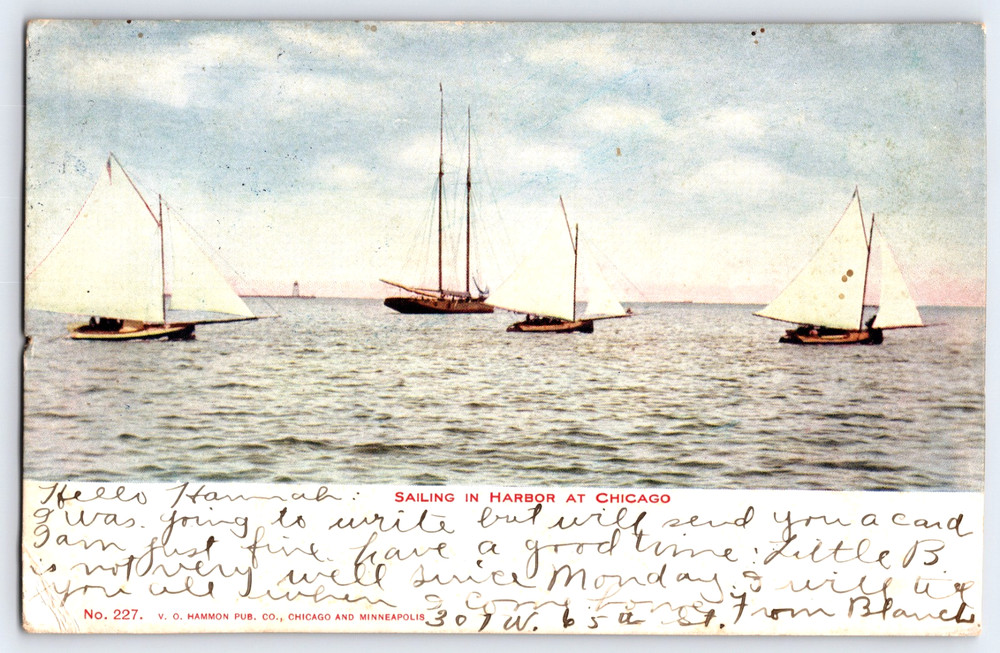 Hello Hannah:
SAILING IN HARBOR AT CHICAGO
I was going to write but will send you a card
I am just fine have a good time: Little B
is not very well since Monday I will tell
you all when I come home From Blanch
No. 227. V. O. HAMMON PUB. CO., CHICAGO AND MINNEAPOLIS
307 W. 65th St.